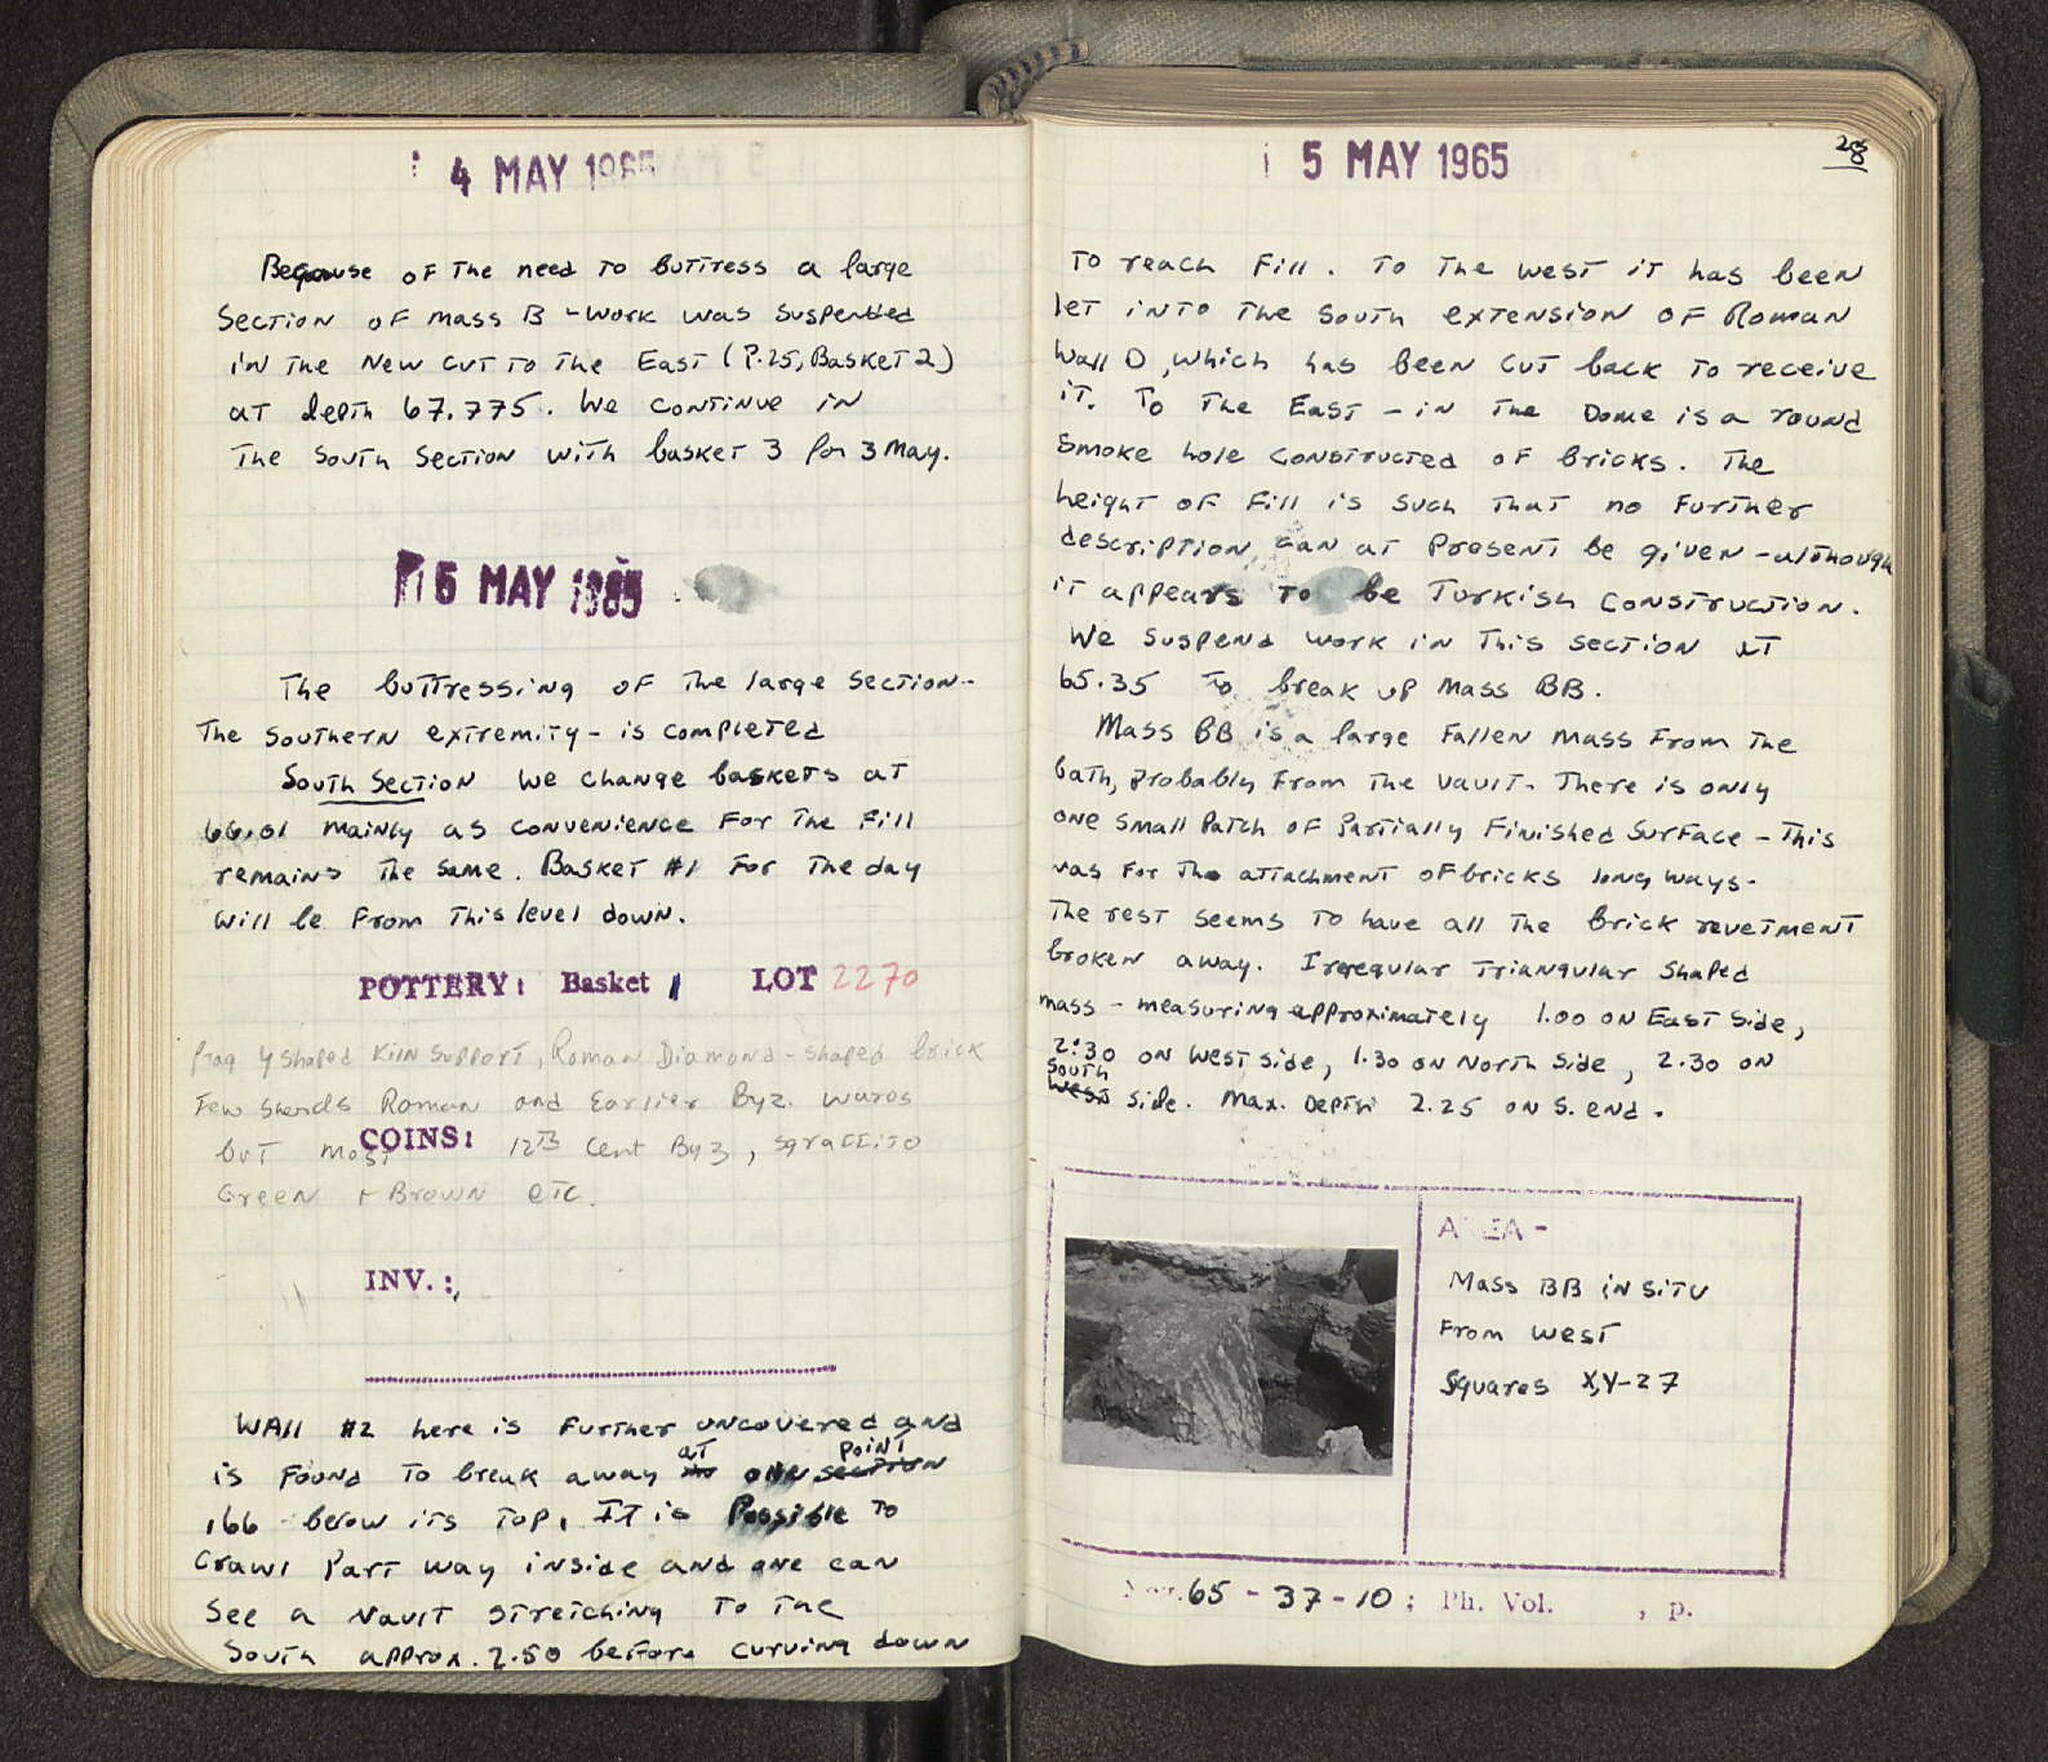 4 MAY 1965
Because of The need To buttress a large
Section of Mass B - Work was Suspended
in The New Cut To The East (P.25, Basket 2)
at depth 67.775. We continue in
The South Section with basket 3 for 3 May.
5 MAY 1965
The buttressing of The large section -
The Southern extremity - is completed
South Section We change baskets at
66.01 mainly as convenience for The fill
remains The same. Basket #1 for The day
will be from This level down.
POTTERY: Basket 1 LOT 2270
frag Y shaped Kiln Support, Roman Diamond-shaped brick
Few Sherds Roman and Earlier Byz. wares
but most 12th Cent Byz, sgraffito
COINS:
Green + Brown etc.
INV.:
Wall #2 here is further uncovered and
is found to break away at one point
.66 below its Top. It is Possible To
Crawl Part way inside and one can
See a Vault stretching To The
South approx. 2.50 before curving down
28
5 MAY 1965
To reach Fill. To The west it has been
let into The South extension of Roman
Wall D, which has been cut back to receive
it. To The East - in The Dome is a round
Smoke hole constructed of bricks. The
height of Fill is Such That no Further
description can at Present be given - although
it appears to be Turkish Construction.
We Suspend work in This section at
65.35 To break up Mass BB.
Mass BB is a large Fallen Mass From The
bath, probably From The Vault. There is only
one small Patch of Partially Finished Surface - This
was For The attachment of bricks long ways.
The rest seems To have all The brick revetment
broken away. Irregular Triangular Shaped
mass - measuring approximately 1.00 on East Side,
2.30 on West side, 1.30 on North side, 2.30 on
South
West side. Max. Depth 2.25 on S. end.
AREA -
Mass BB in situ
From West
Squares X,Y-27
Neg. 65 - 37 - 10 ; Ph. Vol. , p.